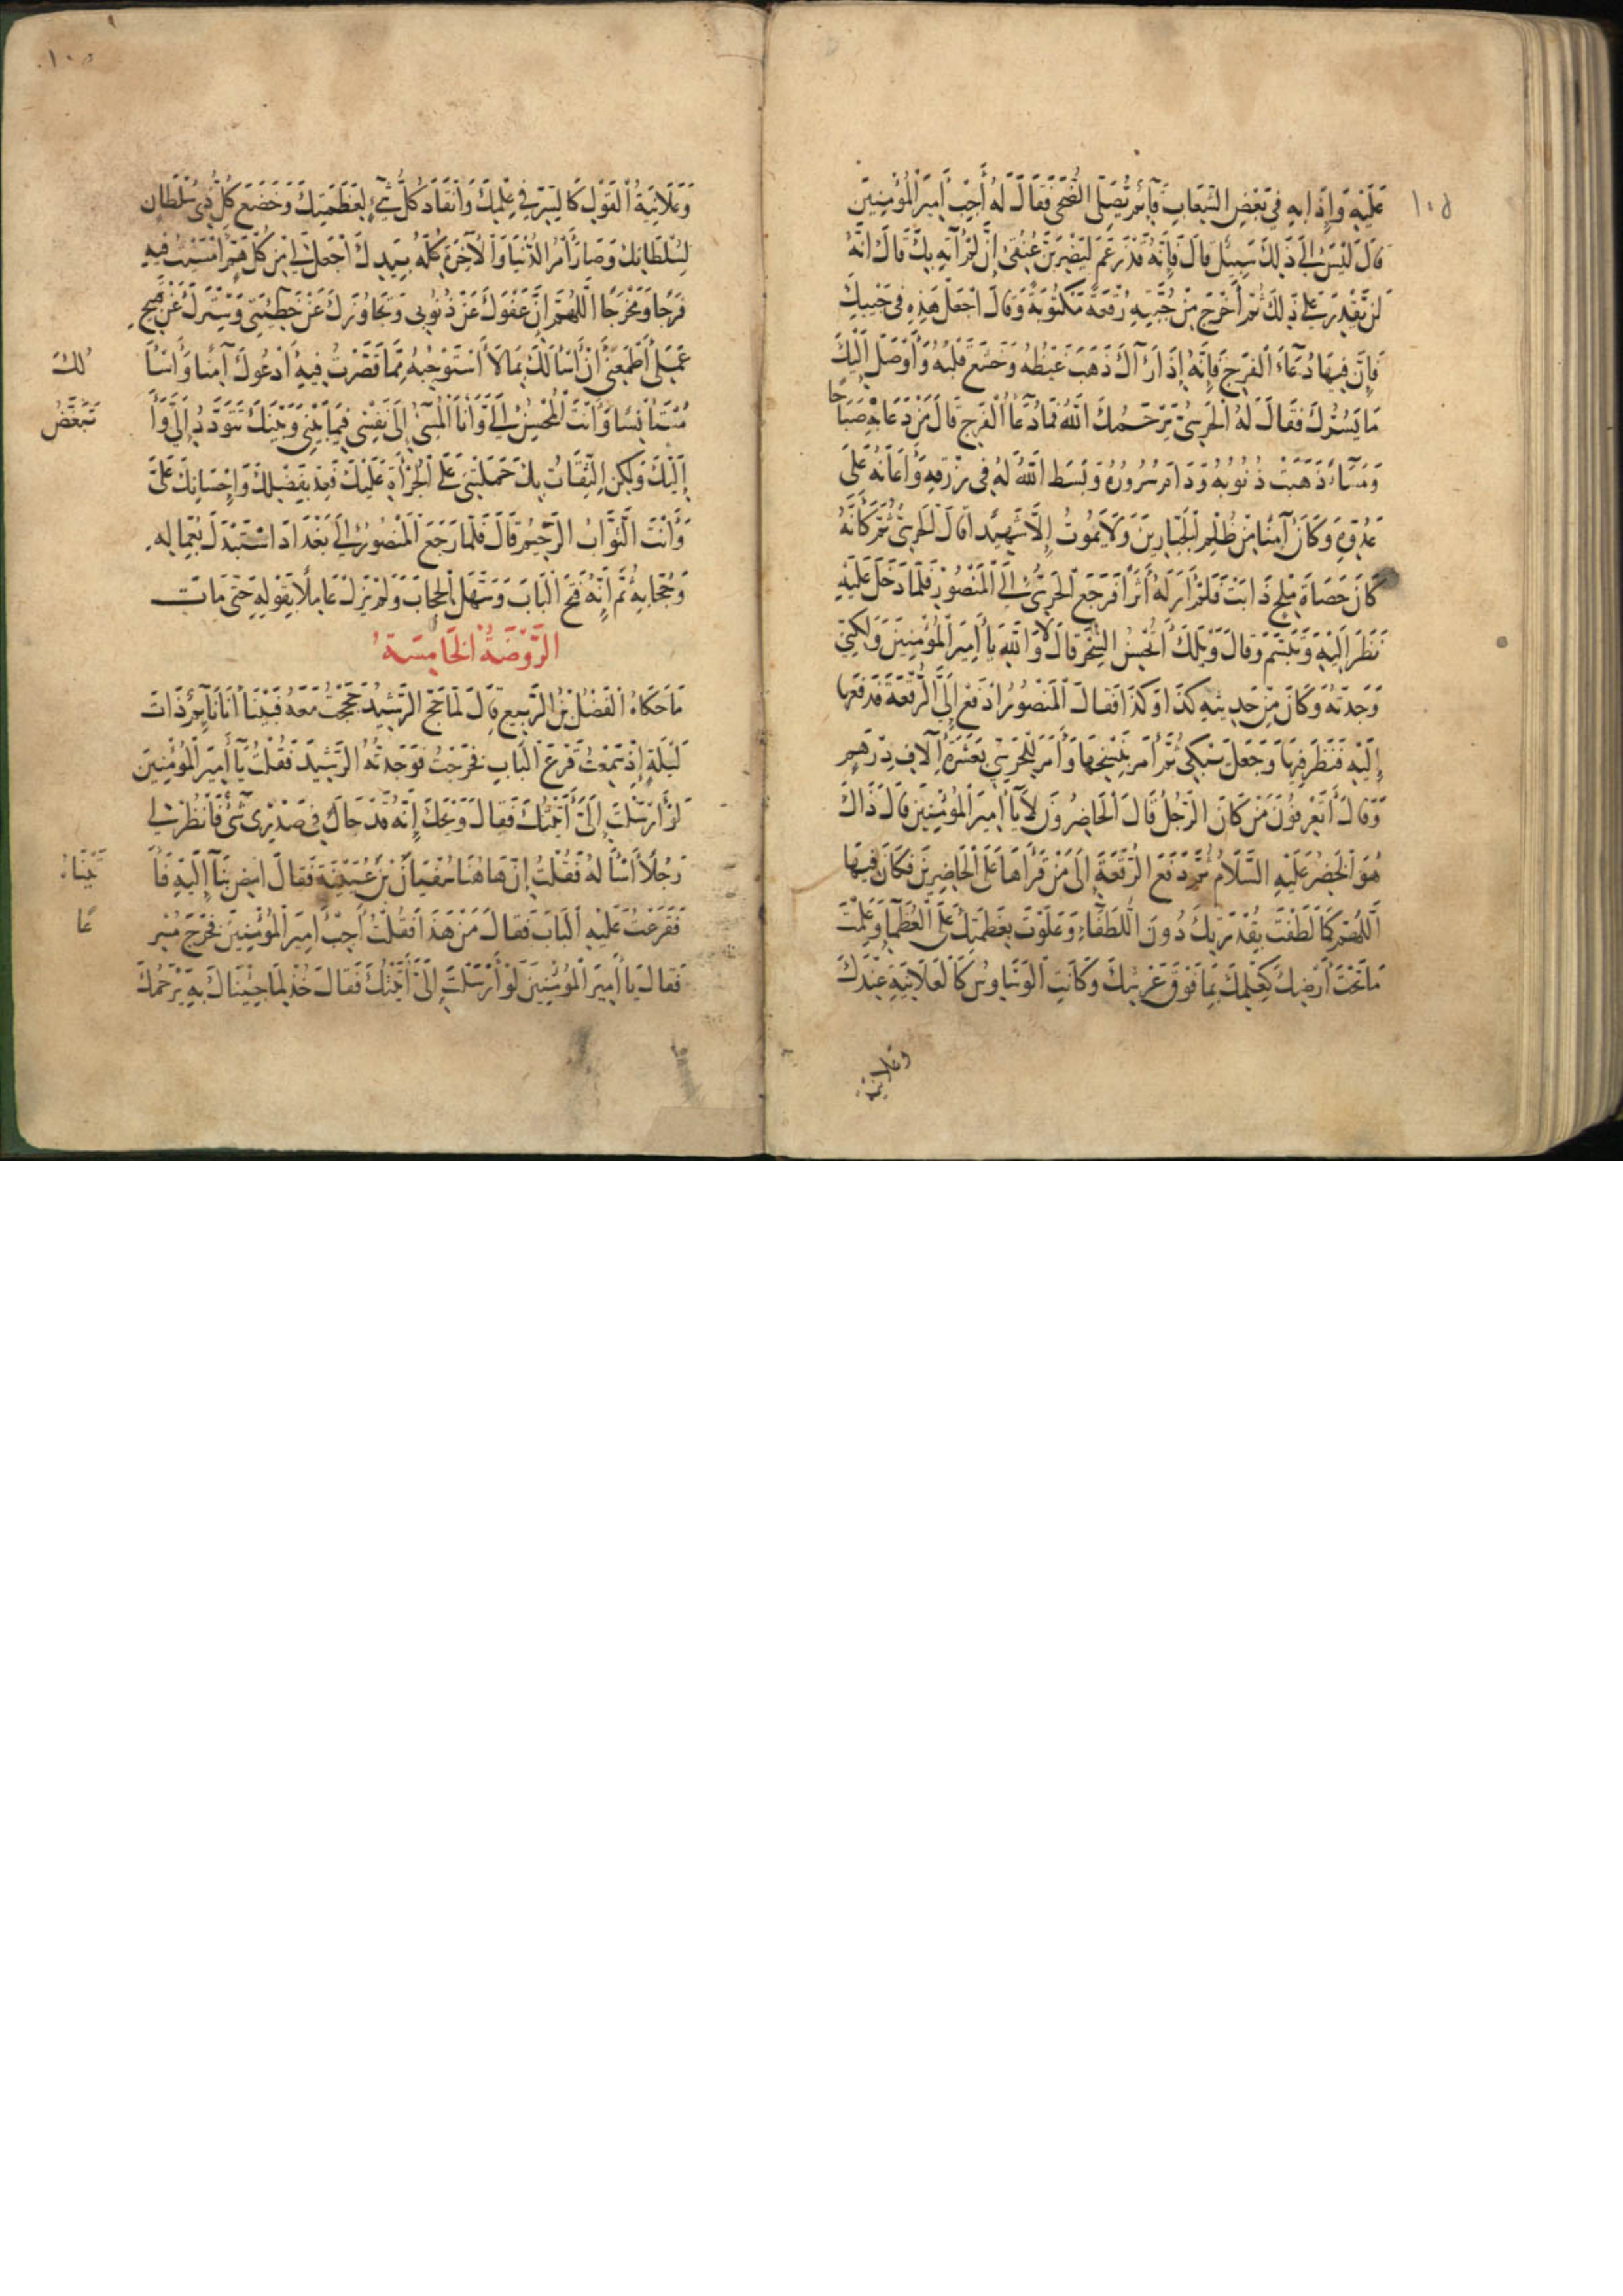 ١٠٥
عَلَيْهِ وَإِذَا بِهِ فِي بَعْضِ الشِّعَابِ قَآئِمٌ يُصَلِّى الضُّحَى فَقَالَ لَهُ أَجِبْ أَمِيرَ الْمُؤْمِنِينَ
قَالَ لَيْسَ لِي إِلَى ذَلِكَ سَبِيلٌ قَالَ فَإِنَّهُ قَدْ زَعَمَ لَيَضْرِبَنَّ عُنُقِى إِنْ لَمْ آتِهِ بِكَ قَالَ إِنَّهُ
لَنْ يَقْدِرَ عَلَى ذَلِكَ ثُمَّ أَخْرَجَ مِنْ جُبَّتِهِ رُقْعَةً مَكْتُوبَةً وَقَالَ اجْعَلْ هَذِهِ فِي جَيْبِكَ
فَإِنَّ فِيهَا دُعَآءَ الْفَرَجِ فَإِنَّهُ إِذَا رَآكَ ذَهَبَ غَيْظُهُ وَخَشَعَ قَلْبُهُ وَأَوْصَلَ إِلَيْكَ
مَا يَسُرُّكَ فَقَالَ لَهُ الْحَرَسِيُّ يَرْحَمُكَ اللَّهُ فَمَا دُعَآءُ الْفَرَجِ قَالَ مَنْ دَعَا بِهِ صَبَاحًا
وَمَسَآءً ذَهَبَتْ ذُنُوبُهُ وَدَامَ سُرُورُهُ وَبَسَطَ اللَّهُ لَهُ فِي رِزْقِهِ وَأَعَانَهُ عَلَى
عَدُوِّهِ وَكَانَ آمِنًا مِنْ ظُلْمِ الْجَبَّارِينَ وَلَا يَمُوتُ إِلَّا شَهِيدًا قَالَ الْحَرَسِيُّ ثُمَّ كَأَنَّهُ
كَانَ حَصَاةَ مِلْحٍ ذَابَتْ فَلَمْ أَرَ لَهُ أَثَرًا فَرَجَعَ الْحَرَسِيُّ إِلَى الْمَنْصُورِ فَلَمَّا دَخَلَ عَلَيْهِ
نَظَرَ إِلَيْهِ وَتَبَسَّمَ وَقَالَ وَيْلَكَ أَتُحْسِنُ السِّحْرَ قَالَ لَا وَاللَّهِ يَا أَمِيرَ الْمُؤْمِنِينَ وَلَكِنِّي
وَجَدْتُهُ وَكَانَ مِنْ حَدِيثِهِ كَذَا وَكَذَا فَقَالَ الْمَنْصُورُ ادْفَعْ إِلَىَّ الرُّقْعَةَ فَدَفَعَهَا
إِلَيْهِ فَنَظَرَ فِيهَا وَجَعَلَ يَبْكِي ثُمَّ أَمَرَ بِنَسْخِهَا وَأَمَرَ لِلْحَرَسِيِّ بِعَشَرَةِ آلَافِ دِرْهَمٍ
وَقَالَ أَتَعْرِفُونَ مَنْ كَانَ الرَّجُلُ قَالَ الْحَاضِرُونَ لَا يَا أَمِيرَ الْمُؤْمِنِينَ قَالَ ذَاكَ
هُوَ الْخَضِرُ عَلَيْهِ السَّلَامُ ثُمَّ دَفَعَ الرُّقْعَةَ إِلَى مَنْ قَرَأَهَا عَلَى الْحَاضِرِينَ فَكَانَ فِيهَا
اللَّهُمَّ كَمَا لَطَفْتَ بِقُدْرَتِكَ دُونَ اللُّطَفَآءِ وَعَلَوْتَ بِعَظَمَتِكَ عَلَى الْعُظَمَآءِ وَعَلِمْتَ
مَا تَحْتَ أَرْضِكَ كَعِلْمِكَ بِمَا فَوْقَ عَرْشِكَ وَكَانَتِ الْوَسَاوِسُ كَالْعَلَانِيَةِ عِنْدَكَ
وعلانية
وَعَلَانِيَةُ الْقَوْلِ كَالسِّرِّ فِي عِلْمِكَ وَانْقَادَ كُلُّ شَيْءٍ لِعَظَمَتِكَ وَخَضَعَ كُلُّ ذِى سُلْطَانٍ
لِسُلْطَانِكَ وَصَارَ أَمْرُ الدُّنْيَا وَالْآخِرَةِ كُلُّهُ بِيَدِكَ اجْعَلْ لِي مِنْ كُلِّ هَمٍّ أَمْسَيْتُ فِيهِ
فَرَجًا وَمَخْرَجًا اللَّهُمَّ إِنَّ عَفْوَكَ عَنْ ذُنُوبِى وَتَجَاوُزَكَ عَنْ خَطِيئَتِي وَسِتْرَكَ عَنْ قَبِيحِ
عَمَلِى أَطْمَعَنِي أَنْ أَسْأَلَكَ مَا لَا أَسْتَوْجِبُهُ مِمَّا قَصَّرْتُ فِيهِ أَدْعُوكَ آمِنًا وَأَسْأَلُكَ
مُسْتَأْنِسًا وَأَنْتَ الْمُحْسِنُ إِلَىَّ وَأَنَا الْمُسِيءُ إِلَى نَفْسِى فِيمَا بَيْنِي وَبَيْنَكَ تَتَوَدَّدُ إِلَىَّ وَأَتَبَغَّضُ
إِلَيْكَ وَلَكِنِ الثِّقَةُ بِكَ حَمَلَتْنِي عَلَى الْجُرْأَةِ عَلَيْكَ فَعُدْ بِفَضْلِكَ وَإِحْسَانِكَ عَلَىَّ
وَأَنْتَ التَّوَّابُ الرَّحِيمُ قَالَ فَلَمَّا رَجَعَ الْمَنْصُورُ إِلَى بَغْدَادَ اسْتَبْدَلَ بِعُمَّالِهِ
وَحُجَّابِهِ ثُمَّ إِنَّهُ فَتَحَ الْبَابَ وَسَهَّلَ الْحِجَابَ وَلَمْ يَزَلْ عَامِلًا بِقَوْلِهِ حَتَّى مَاتَ
الرَّوْضَةُ الْخَامِسَةُ
مَا حَكَاهُ الْفَضْلُ بْنُ الرَّبِيعِ قَالَ لَمَّا حَجَّ الرَّشِيدُ حَجَجْتُ مَعَهُ فَبَيْنَا أَنَا نَآئِمٌ ذَاتَ
لَيْلَةٍ إِذْ سَمِعْتُ قَرْعَ الْبَابِ فَخَرَجْتُ فَوَجَدْتُهُ الرَّشِيدَ فَقُلْتُ يَا أَمِيرَ الْمُؤْمِنِينَ
لَوْ أَرْسَلْتَ إِلَىَّ أَتَيْتُكَ فَقَالَ وَيْحَكَ إِنَّهُ قَدْ حَاكَ فِي صَدْرِى شَىْءٌ فَانْظُرْ لِي
رَجُلًا أَسْأَلُهُ فَقُلْتُ إِنَّ هَاهُنَا سُفْيَانَ بْنَ عُيَيْنَةَ فَقَالَ امْضِ بِنَآ إِلَيْهِ فَأَتَيْنَاهُ
فَقَرَعْتُ عَلَيْهِ الْبَابَ فَقَالَ مَنْ هَذَا فَقُلْتُ أَجِبْ أَمِيرَ الْمُؤْمِنِينَ فَخَرَجَ مُسْرِعًا
فَقَالَ يَا أَمِيرَ الْمُؤْمِنِينَ لَوْ أَرْسَلْتَ إِلَىَّ أَتَيْتُكَ فَقَالَ خُذْ لِمَا جِئْنَاكَ بِهِ يَرْحَمُكَ